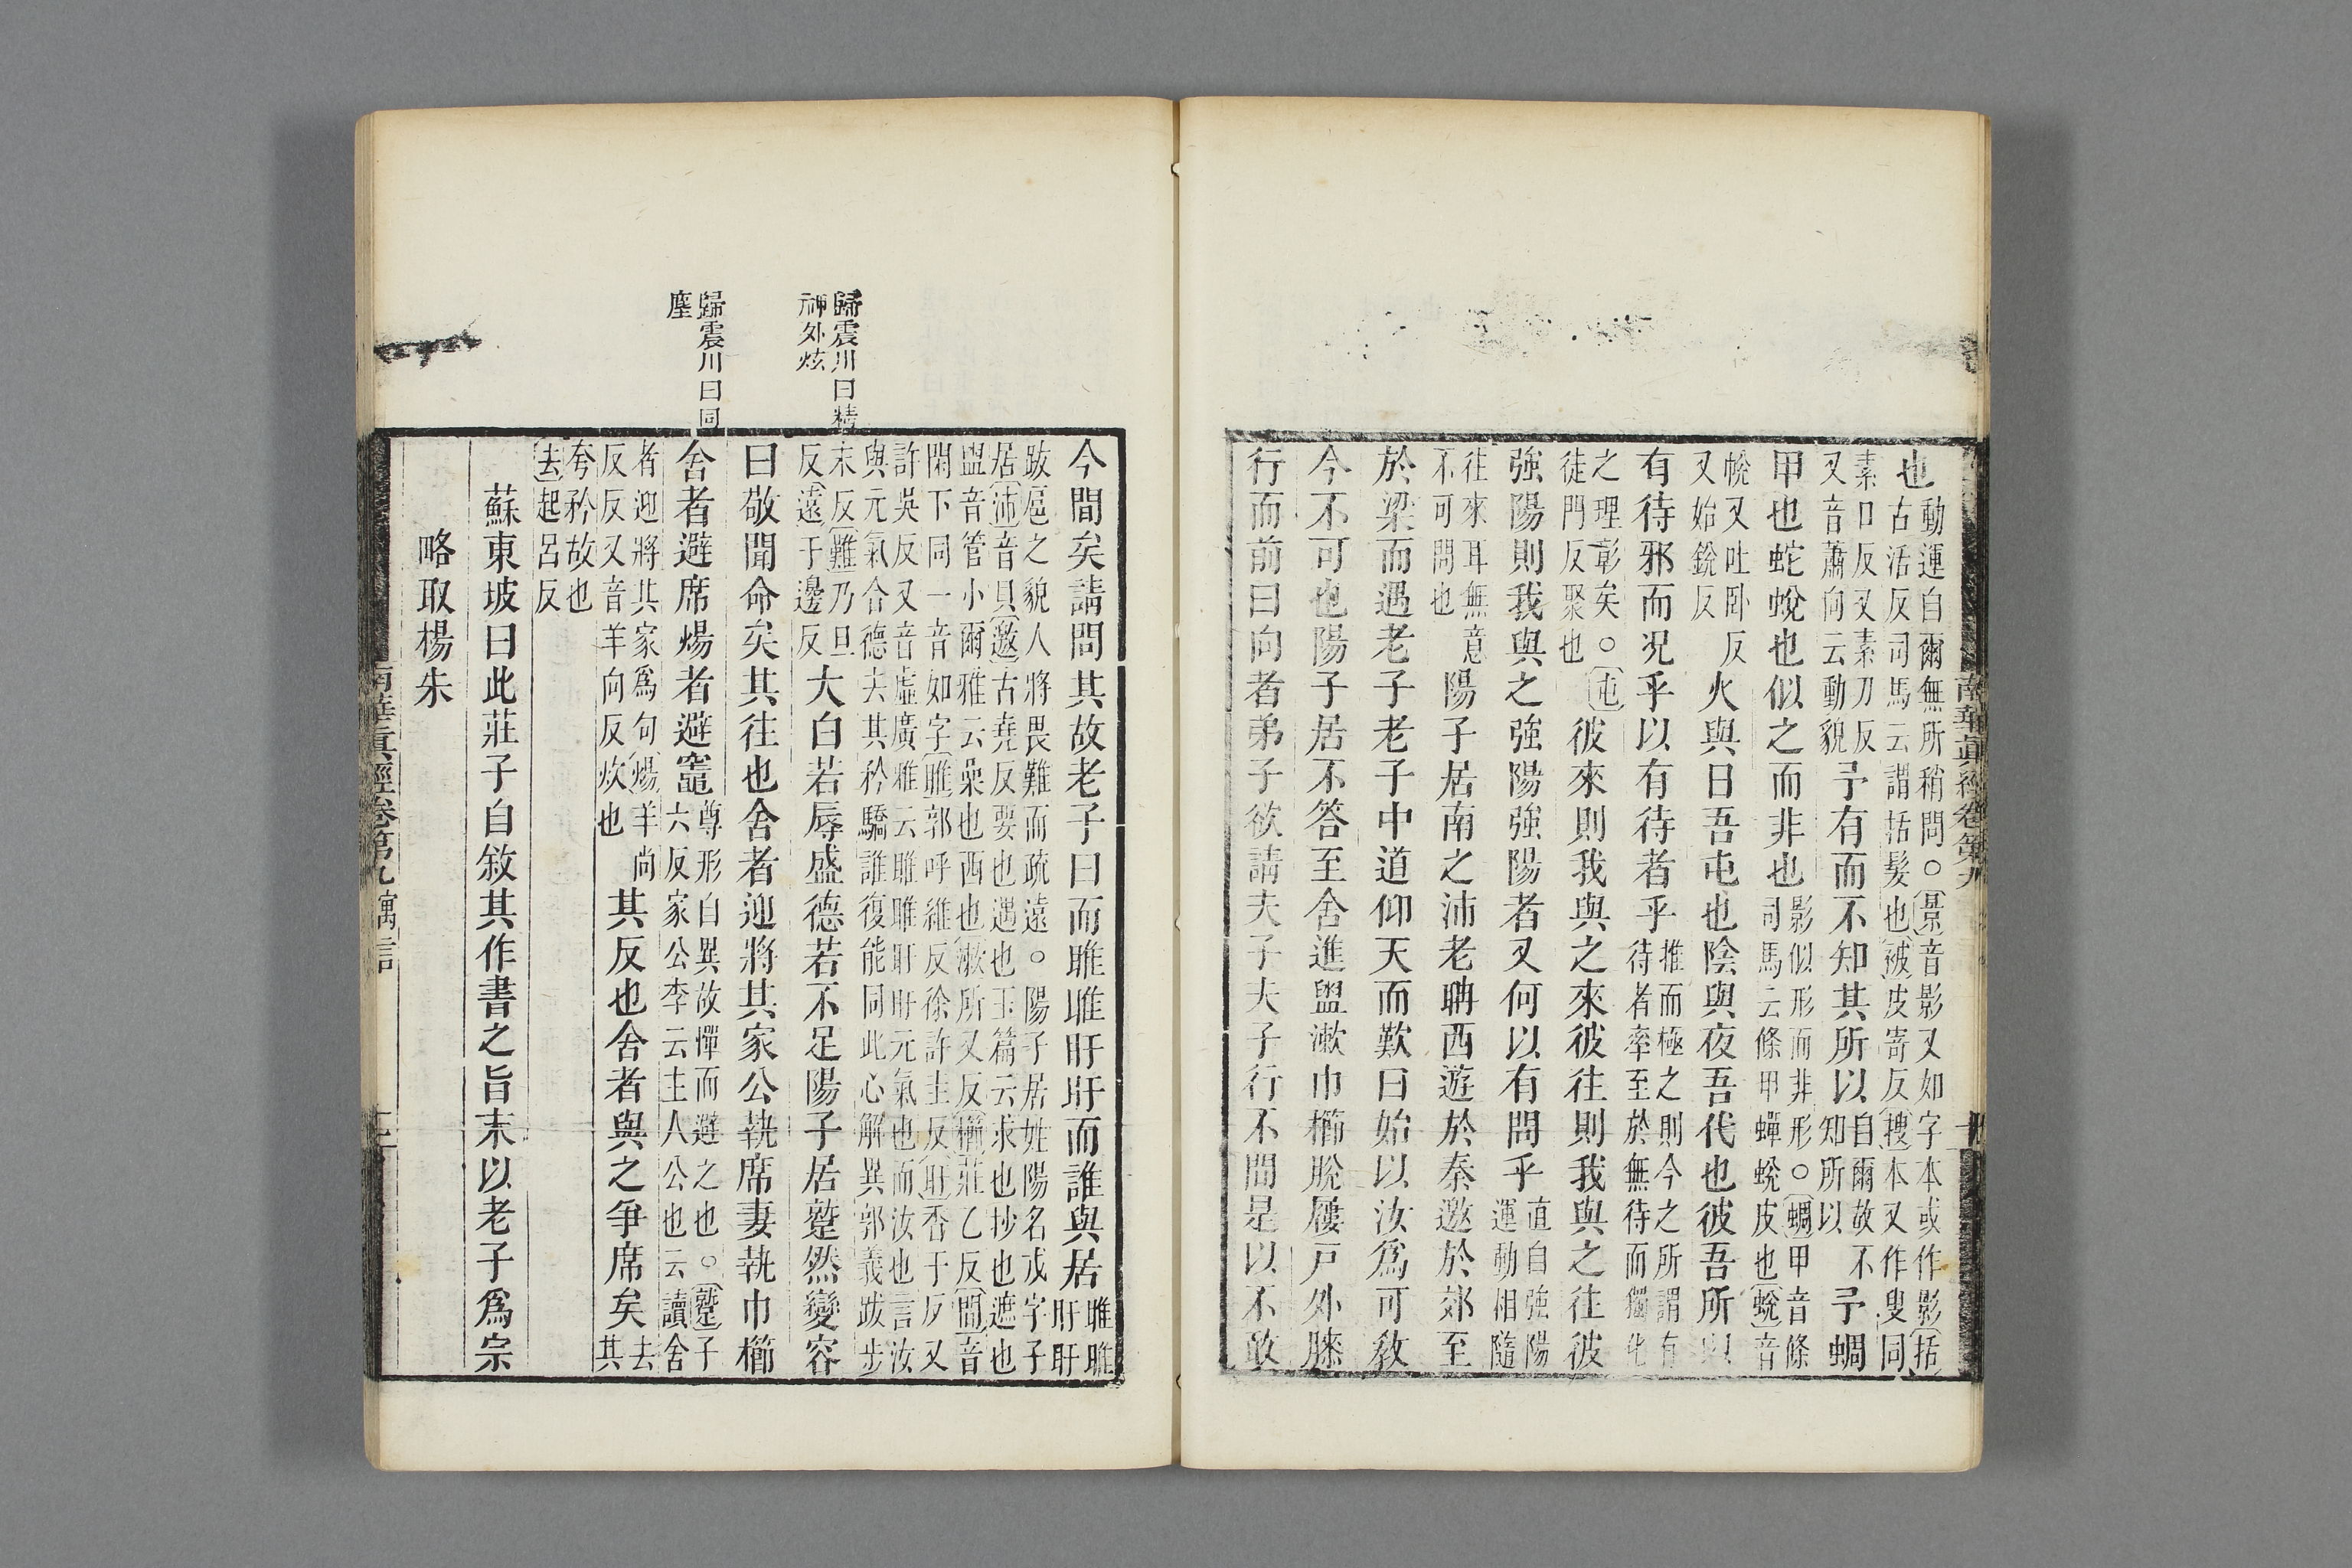 南華眞經卷第九
十
也動運自爾無所稍問○景音影又如字本或作影括古活反司馬云謂括髮也被皮寄反搜本又作叟同
素口反又素刀反又音蕭向云動貌予有而不知其所以自爾故不知所以予蜩
甲也蛇蛻也似之而非也影似形而非形○蜩甲音條司馬云條甲蟬蛻皮也蛻音
帨又吐卧反又始銳反火與日吾屯也陰與夜吾代也彼吾所以
有待邪而况乎以有待者乎推而極之則今之所謂有待者率至於無待而獨化
之理彰矣○屯徒門反聚也彼來則我與之來彼往則我與之往彼
強陽則我與之強陽強陽者又何以有問乎直自強陽運動相隨
往來耳無意不可問也陽子居南之沛老聃西遊於秦邀於郊至
於梁而遇老子老子中道仰天而歎曰始以汝爲可教
今不可也陽子居不答至舍進盥漱巾櫛脫屨戶外膝
行而前曰向者弟子欲請夫子夫子行不間是以不敢
今間矣請問其故老子曰而睢睢盱盱而誰與居睢睢盱盱
跋扈之貌人將畏難而疏遠○陽子居姓陽名戎字子居沛音貝邀古堯反要也遇也玉篇云求也抄也遮也
盥音管小爾雅云澡也西也漱所又反櫛莊乙反間音閑下同一音如字睢郭呼維反徐許圭反盱香于反又
許吳反又音虛廣雅云睢睢盱盱元氣也而汝也言汝與元氣合德去其矜驕誰復能同此心解異郭義跋步
末反難乃旦反遠于邊反大白若辱盛德若不足陽子居蹵然變容
曰敬聞命矣其往也舍者迎將其家公執席妻執巾櫛
舍者避席煬者避竈尊形自異故憚而避之也○蹵子六反家公李云主人公也云讀舍
者迎將其家爲句煬羊尚反反又音羊向反炊也其反也舍者與之爭席矣去其
夸矜故也去起呂反
蘇東坡曰此莊子自敘其作書之旨末以老子爲宗
略取楊朱
歸震川曰精
神外炫
歸震川曰同
塵
南華眞經卷第九寓言